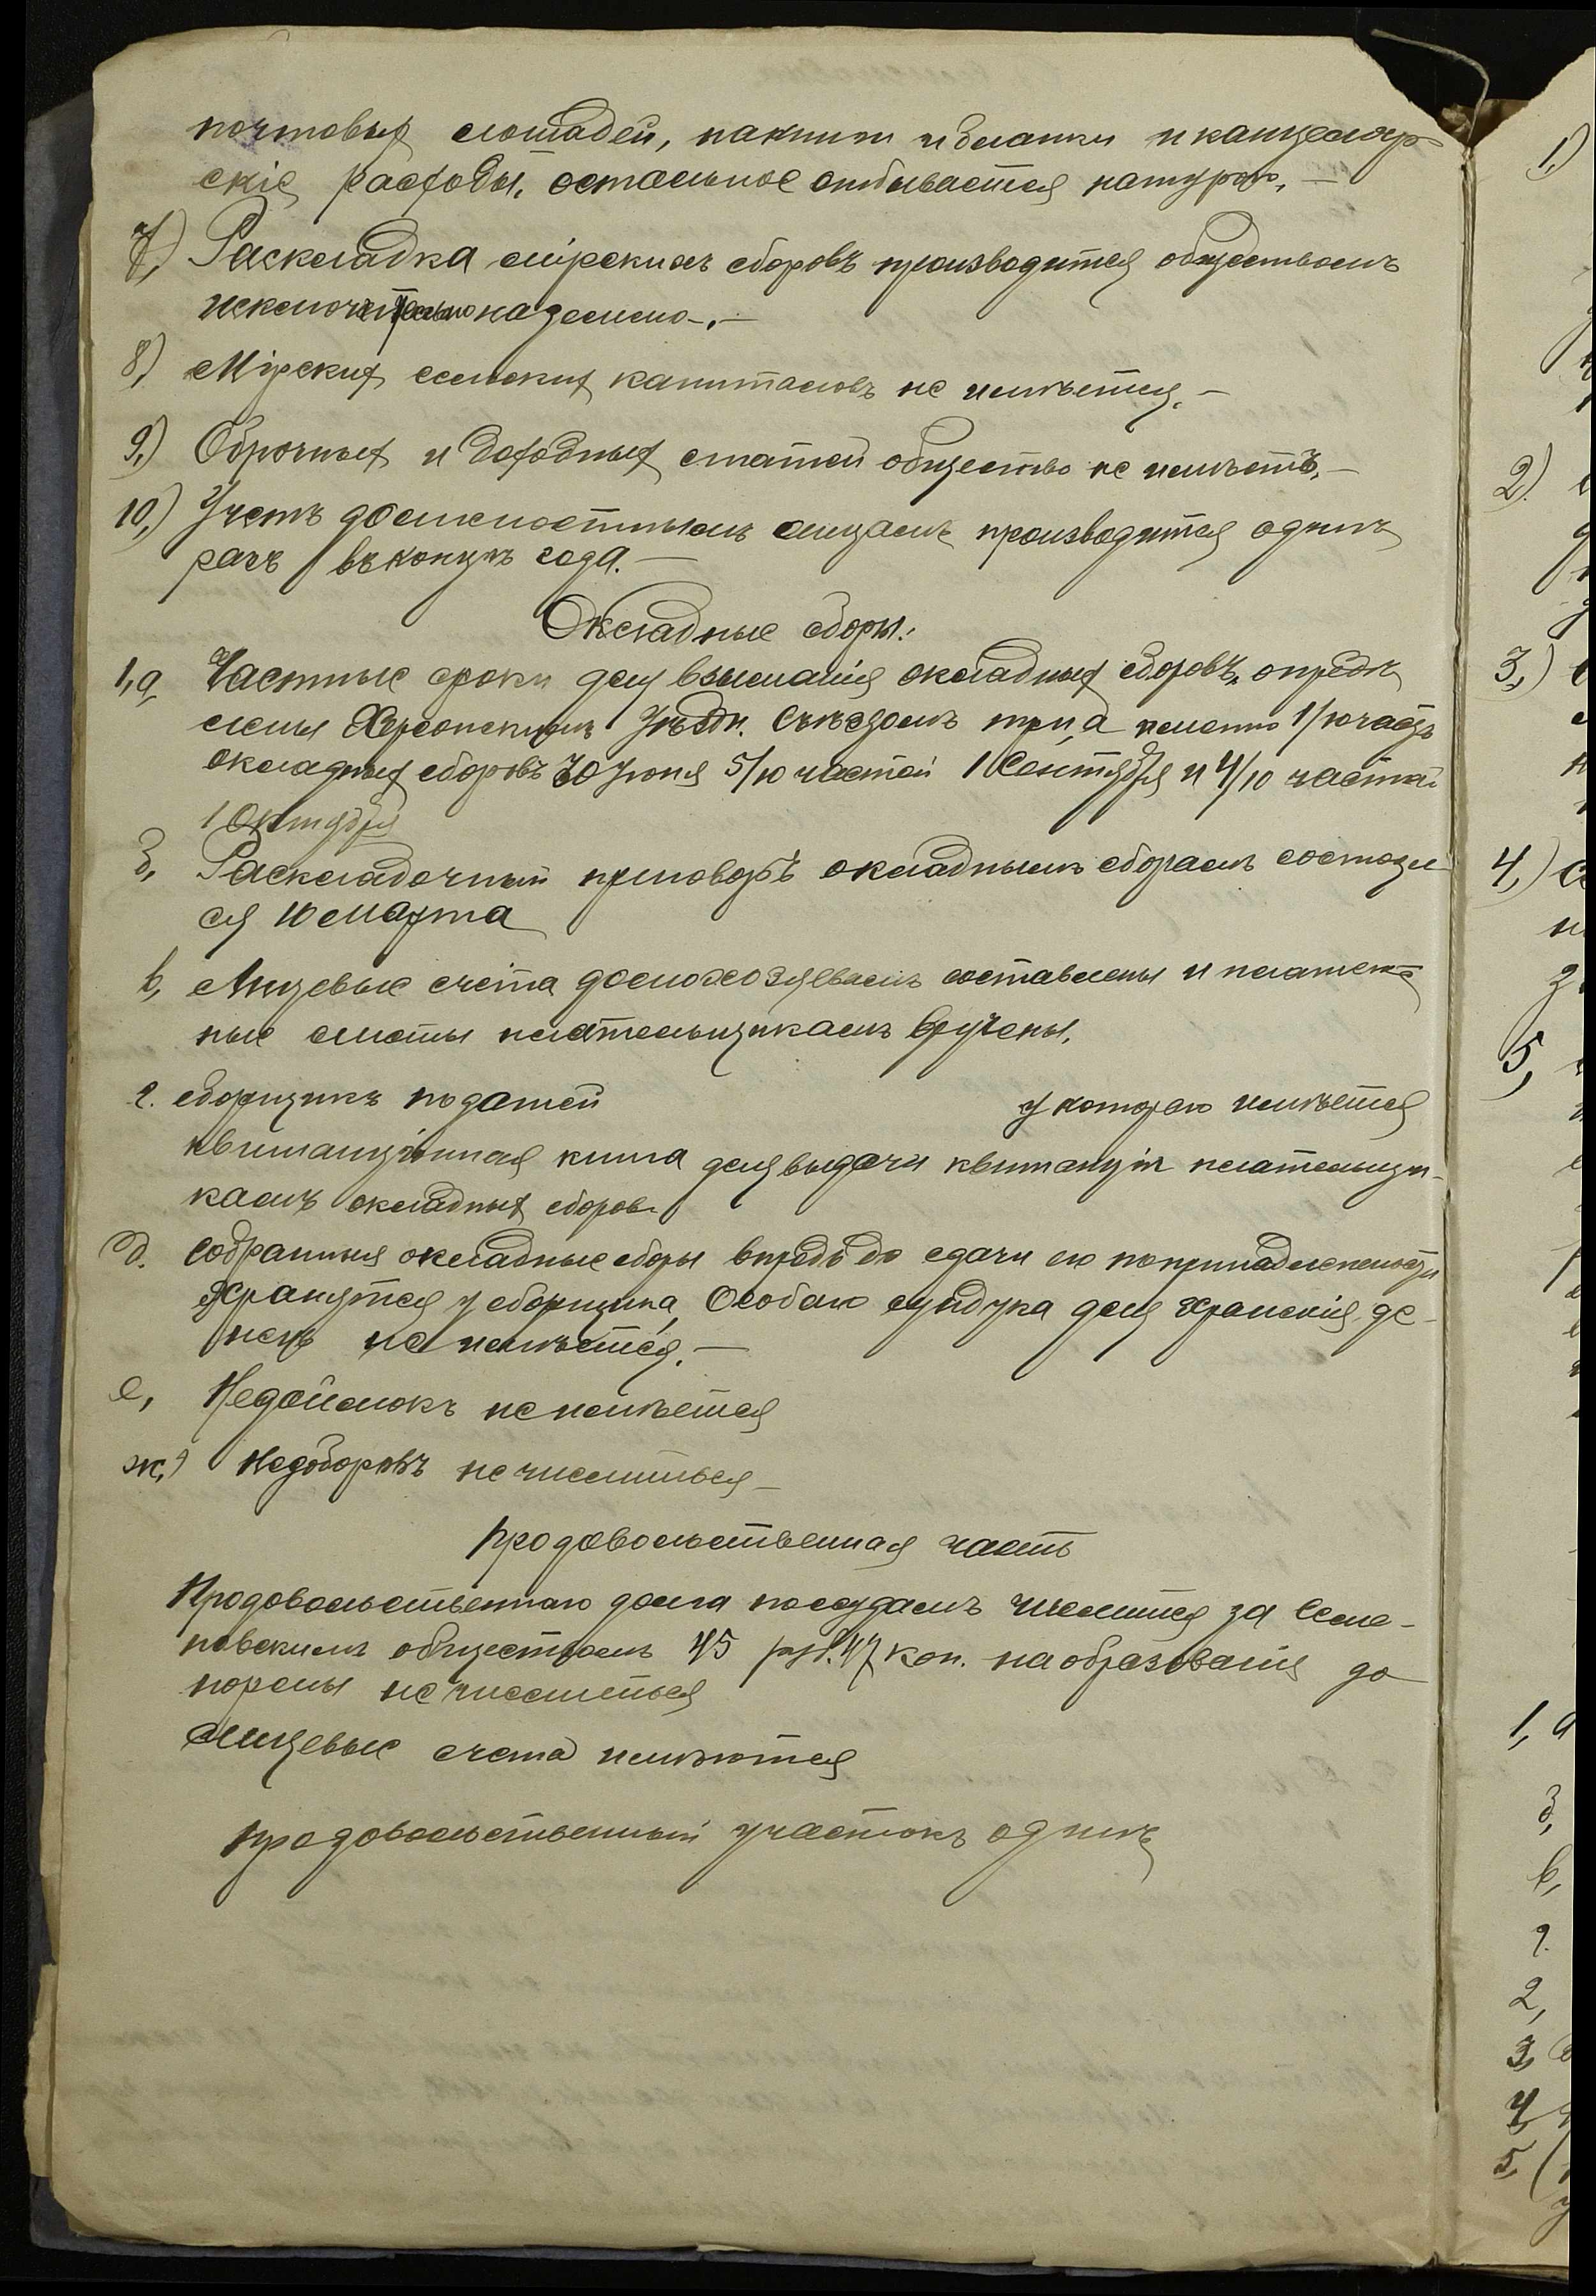 почтовых лошадей, накниги и бланки и канцеляр-
скіе расходы, остальное отбывается натурою. —
7) Раскладка мірских сборовъ производится обществомъ
исключительно на землю. —
8) Мірских сельских капиталовъ не имѣется. —
9) Оброчных и доходных статей общество не имѣетъ. —
10) Учетъ должностнымъ лицамъ производится одинъ
разъ въ концѣ года. —
Окладные сборы:
1, а, Частные сроки для взыманія окладных сборовъ, опредѣ
лены Херсонскимъ Уѣздн. Съѣздомъ три, а именно 1/10 часть
окладных сборовъ 30 Іюня 5/10 частей 1 Сентября и 4/10 частей
1 Октября
б, Раскладочный приговоръ окладнымъ сборамъ состоял
ся 10 Марта
в, Лицевые счета домохозяевамъ составлены и платеж-
ные листы плательщикамъ вручены.
г. сборщикъ податей у которого имѣется
квитанціонная книга для выдачи квитанцій плательщи-
камъ окладных сборов.
д. Собранныя окладные сборы впредь до сдачи ею по принадлежности
хранятся у сборщика, Особаго сундука для храненія де-
негъ не имѣется. —
е, Недоимокъ не имѣется
ж,) Недоборовъ не числиться —
Продовольственная часть
Продовольственнаго долга по ссудамъ числится за Семе-
новскимъ обществомъ 45 руб. 47 коп. на образованія до
нормы не числиться
Лицевые счета имѣются
продовольственный участокъ одинъ
1,)
2).
3,)
4,)
5,
1, а
б,
в,
г.
2,
3,
4,
5,